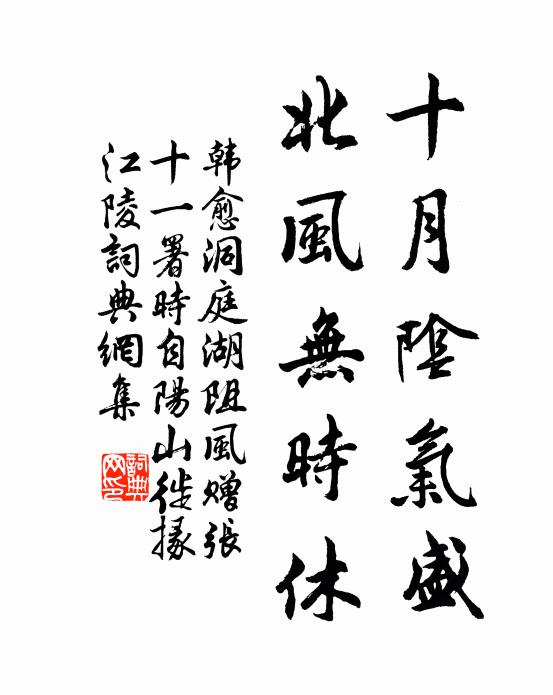 十月陰氣盛
北風無時休
韓愈洞庭湖阻風贈張
十一署時自陽山徙掾
江陵詞典網集
詞典網印